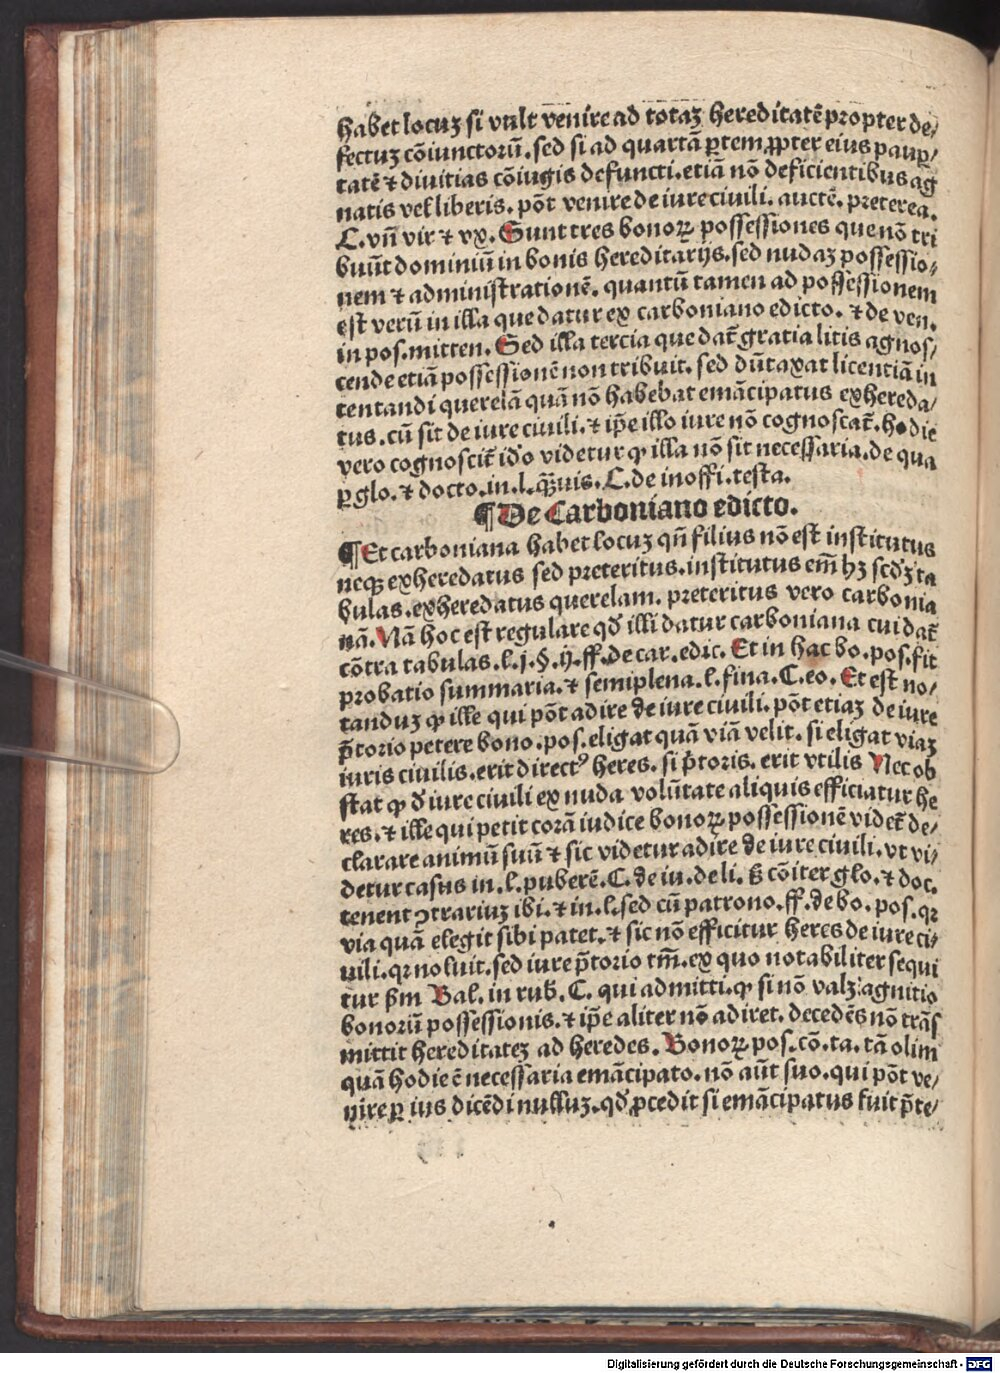 habet locuꝫ si vult venire ad totaꝫ hereditatē propter de/
fectuꝫ cōiunctorū. sed si ad quartā ꝑtem ꝓpter eius pauꝑ/
tatē ⁊ diuitias cōiugis defuncti. etiā nō deficientibus ag
natis vel liberis. pōt venire de iure ciuili. auctē. preterea.
C. vñ vir ⁊ vx. Sunt tres bonoꝝ possessiones que nō tri
buūt dominiū in bonis hereditarijs. sed nudaꝫ possessio/
nem ⁊ administrationē. quantū tamen ad possessionem
est verū in illa que datur ex carboniano edicto. ⁊ de ven.
in pos. mitten. Sed illa tercia que dat̄ gratia litis agnos/
cende etiā possessionē non tribuit. sed dūtaxat licentiā in
tentandi querelā quā nō habebat emācipatus exhereda/
tus. cū sit de iure ciuili. ⁊ ip̄e illo iure nō cognoscat̄. hodie
vero cognoscit̄ id'o videtur ꝙ illa nō sit necessaria. de qua
ꝑ glo. ⁊ docto. in. l. q̄uis. C. de inoffi. testa.
¶ De Carboniano edicto.
¶ Et carboniana habet locuꝫ qñ filius nō est institutus
neqꝫ exheredatus sed preteritus. institutus em̄ hꝫ scd'ꝫ ta
bulas. exheredatus querelam. preteritus vero carbonia
nā. Nā hoc est regulare qd' illi datur carboniana cui dat̄
cōtra tabulas. l. j. §. ij. ff. de car. edic. Et in hac bo. pos. fit
probatio summaria. ⁊ semiplena. l. fina. C. eo. Et est no/
tanduꝫ ꝙ ille qui pōt adire de iure ciuili. pōt etiaꝫ de iure
p̄torio petere bono. pos. eligat quā viā velit. si eligat viaꝫ
iuris ciuilis. erit directꝰ heres. si p̄toris. erit vtilis Nec ob
stat ꝙ d' iure ciuili ex nuda volūtate aliquis efficiatur he
res. ⁊ ille qui petit corā iudice bonoꝝ possessionē videt̄ de/
clarare animū suū ⁊ sic videtur adire de iure ciuili. vt vi/
detur casus in. l. puberē. C. de iu. deli. ß cōiter glo. ⁊ doc.
tenent ꝯtrariuꝫ ibi. ⁊ in. l. sed cū patrono. ff. de bo. pos. qꝛ
via quā elegit sibi patet. ⁊ sic nō efficitur heres de iure ci/
uili. qꝛ noluit. sed iure p̄torio tm̄. ex quo notabiliter sequi
tur ẜm Bal. in rub'. C. qui admitti. ꝙ si nō valꝫ agnitio
bonorū possessionis. ⁊ ip̄e aliter nō adiret. decedēs nō trās
mittit hereditateꝫ ad heredes. Bonoꝝ pos. cō. ta. tā olim
quā hodie ē necessaria emācipato. nō aūt suo. qui pōt ve/
nire ꝑ ius dicēdi nulluꝫ. qd' ꝓcedit si emācipatus fuit p̄te/
Digitalisierung gefördert durch die Deutsche Forschungsgemeinschaft - DFG